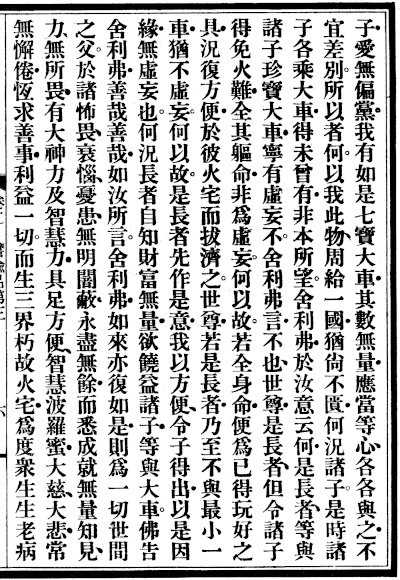 子愛無偏黨我有如是七寶大車其數無量應當等心各各與之不
宜差別所以者何以我此物周給一國猶尚不匱何況諸子是時諸
子各乘大車得未曾有非本所望舍利弗於汝意云何是長者等與
諸子珍寶大車寧有虛妄不舍利弗言不也世尊是長者但令諸子
得免火難全其軀命非爲虛妄何以故若全身命便爲已得玩好之
具況復方便於彼火宅而拔濟之世尊若是長者乃至不與最小一
車猶不虛妄何以故是長者先作是意我以方便令子得出以是因
緣無虛妄也何況長者自知財富無量欲饒益諸子等與大車佛告
舍利弗善哉善哉如汝所言舍利弗如來亦復如是則爲一切世間
之父於諸怖畏衰惱憂患無明闇蔽永盡無餘而悉成就無量知見
力無所畏有大神力及智慧力具足方便智慧波羅蜜大慈大悲常
無懈倦恆求善事利益一切而生三界朽故火宅爲度衆生生老病